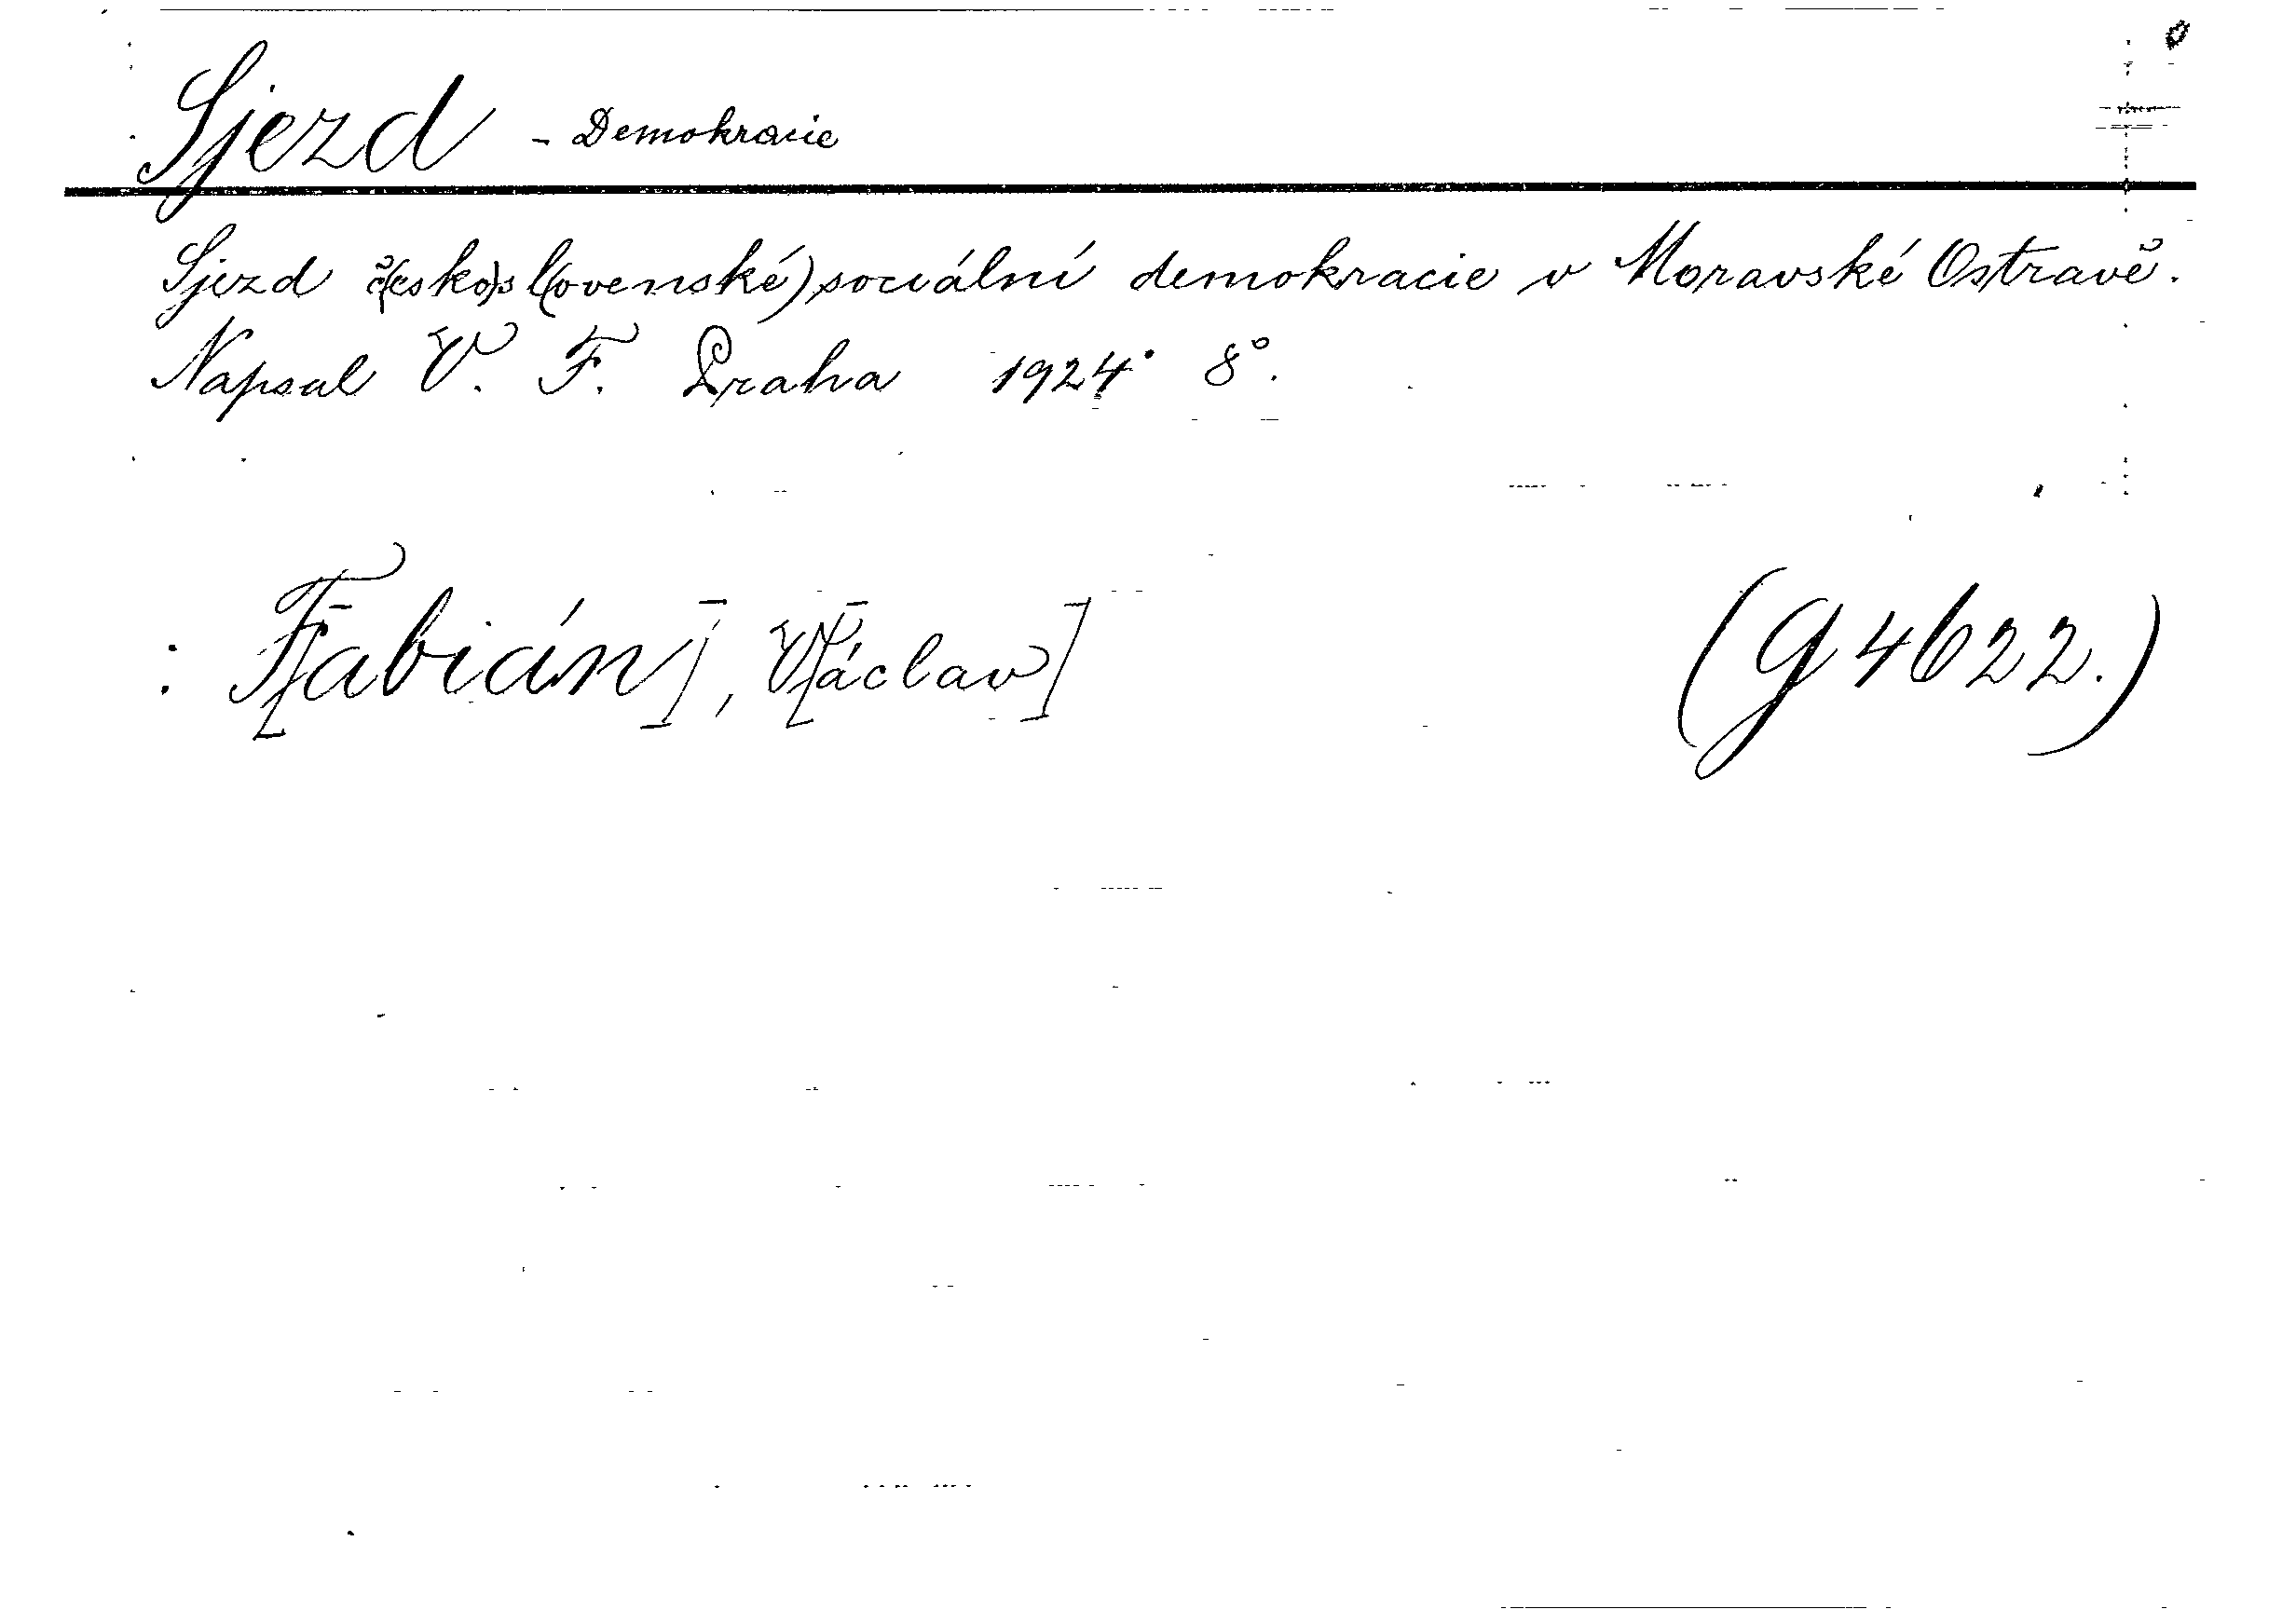 Sjezd - Demokracie
Sjezd č(esko)sl(ovenské) sociální demokracie v Moravské Ostravě.
Napsal V. F. Praha 1924. 8°.
: F[abián], V[áclav] (G 4622.)